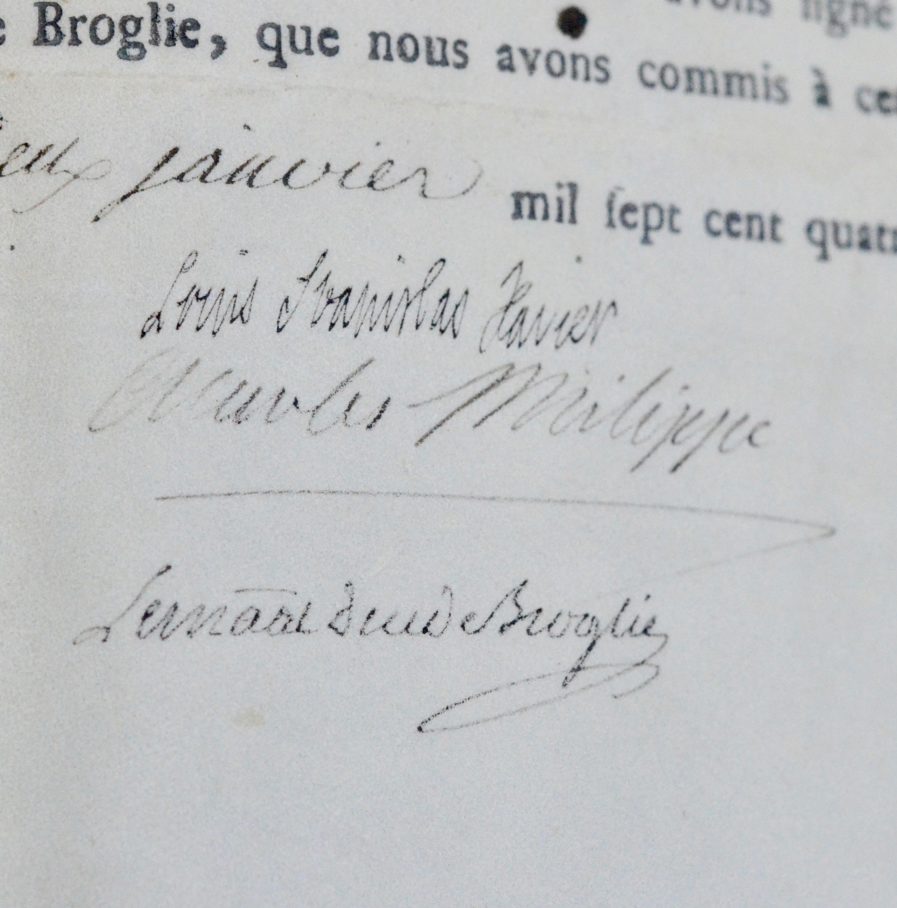 avons ſigné
Broglie, que nous avons commis à
janvier mil ſept cent
Louis Stanislas Xavier
Charles Philippe
Le Broglie